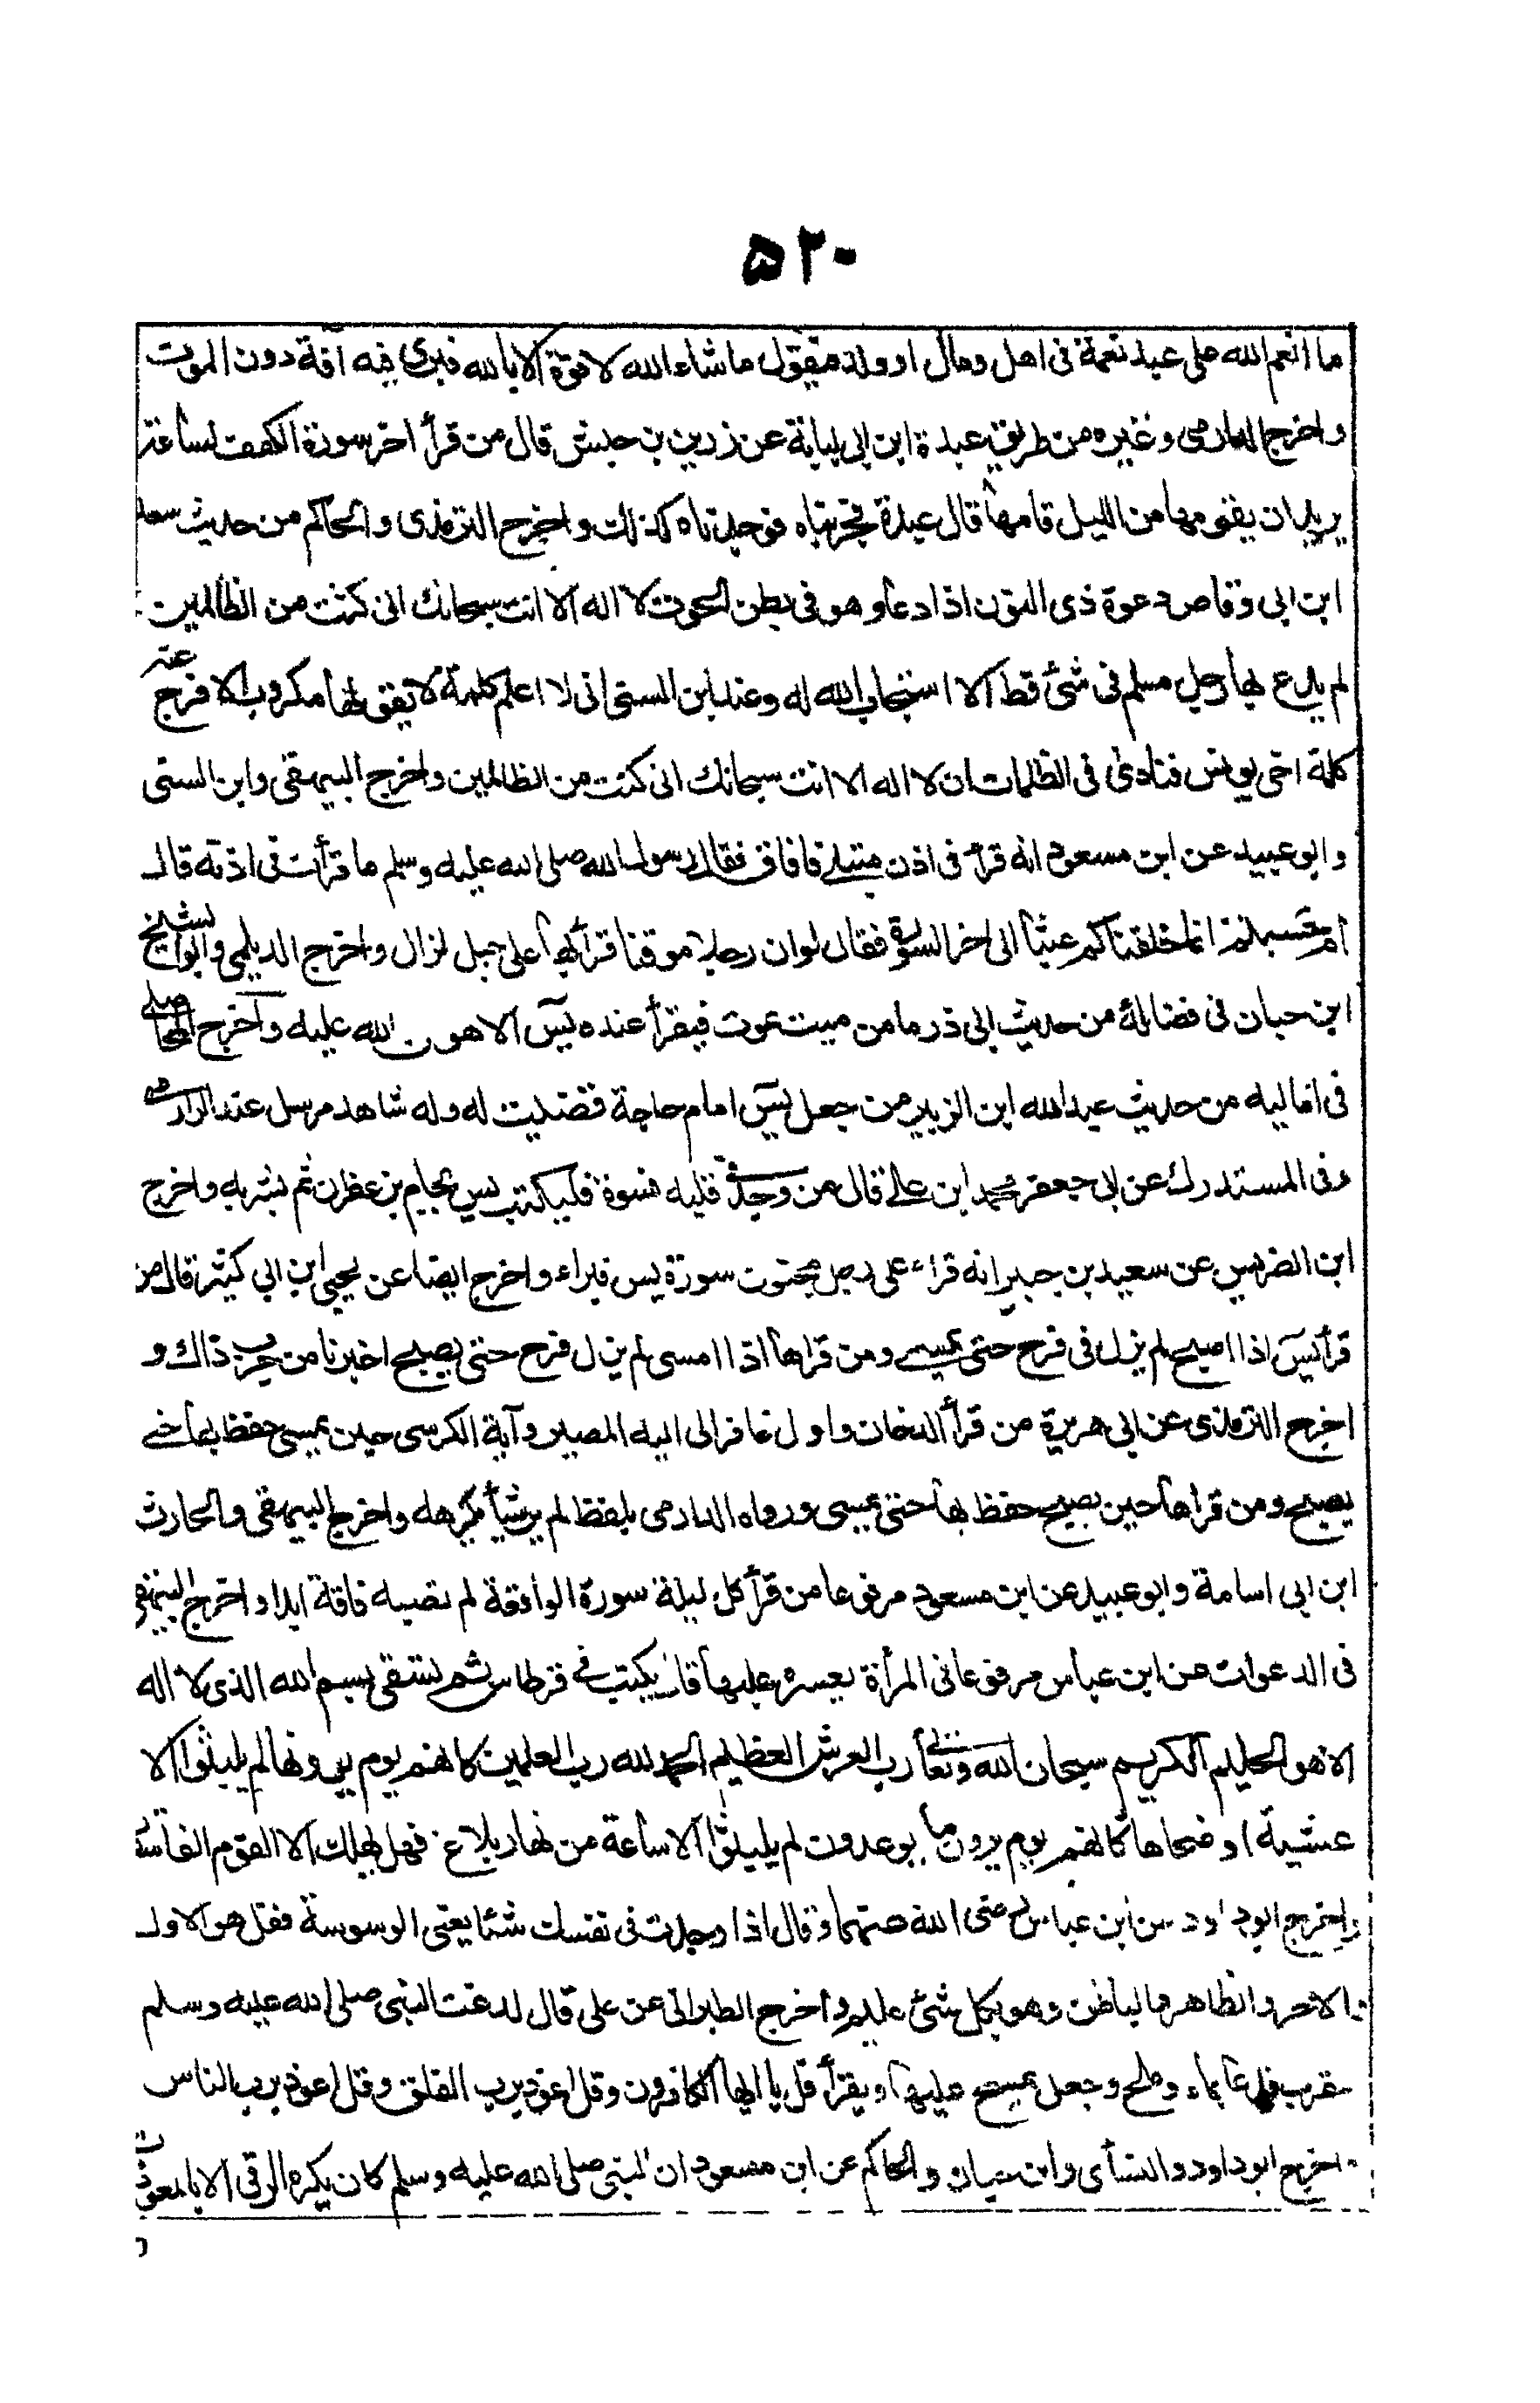 ۵۲۰
ما انعم الله على عبد نعمة فى اهل ومال او ولد فيقول ما شاء الله لا قوة الا بالله فيرى فيه آفة دون الموت
واخرج الدارمى وغيره من طريق عبدة ابن ابى لبابة عن زربن بن حبيش قال من قرأ اخر سورة الكهف لساعة
يريد ان يقوم مها من الليل قامها قال عبدة فجربناه فوجدناه كذلك واخرج الترمذى والحاكم من حديث سعد
ابن ابى وقاص دعوة ذى النون اذا دعا وهو فى بطن الحوت لا اله الا انت سبحانك انى كنت من الظالمين
لم يدع بها رجل مسلم فى شئ قط الا استجاب الله له وعند ابن السنى انى لا اعلم كلمة لا يقولها مكروب الا فرج عنه
كلمة اخى يونس فنادى فى الظلمات ان لا اله الا انت سبحانك انى كنت من الظالمين واخرج البيهقى وابن السنى
وابو عبيد عن ابن مسعود انه قرأ فى اذن مبتلى فافاق فقال رسول الله صلى الله عليه وسلم ما قرأت فى اذنه قال
افحسبتم انما خلقناكم عبثا الى اخر السورة فقال لو ان رجلا موقنا قرأ بها على جبل لزال واخرج الديلمى وابو الشيخ
ابن حبان فى فضائله من حديث ابى ذر ما من ميت يموت فيقرأ عنده يس الا هون الله عليه واخرج المحاملى
فى اماليه من حديث عبد الله ابن الزبير من جعل يس امام حاجة قضيت له وله شاهد مرسل عند الدارمى
وفى المستدرك عن ابى جعفر محمد ابن على قال من وجد فى قلبه قسوة فليكتب يس بجام بزعفران ثم يشربه واخرج
ابن الضريس عن سعيد بن جبير انه قراء على رجل مجنون سورة يس فبراء واخرج ايضا عن يحيى ابن ابى كثير قال من
قرأ يس اذا اصبح لم يزل فى فرح حتى يمسى ومن قراها اذا امسى لم يزل فرح حتى يصبح اخبرنا من جرب ذاك و
اخرج الترمذى عن ابى هريرة من قرأ الدخان واول غافر الى اليه المصير وآية الكرسى حين يمسى حفظ بها حتى
يصبح ومن قراها حين يصبح حفظ بها حتى يمسى ورواه الدارمى بلفظ لم ير شيأ يكرهه واخرج البيهقى والحارث
ابن ابى اسامة وابو عبيد عن ابن مسعود مرفوعا من قرأ كل ليلة سورة الواقعة لم تصبه فاقة ابدا واخرج البيهقى
فى الدعوات عن ابن عباس مرفوعا فى المرأة يعسر عليها قال يكتب فى قرطاس ثم تسقى بسم الله الذى لا اله
الا هو الحليم الكريم سبحان الله وتعالى رب العرش العظيم الحمد لله رب العلمين كانهم يوم يرونها لم يلبثوا الا
عشية او ضحاها كانهم يوم يرون ما يوعدون لم يلبثوا الا ساعة من نهار بلاغ فهل يهلك الا القوم الفاسق
واخرج ابو داود عن ابن عباس رضى الله عنهما قال اذا وجدت فى نفسك شئا يعنى الوسوسة فقل هو الاول
والاخر والظاهر والباطن وهو بكل شئ عليم واخرج الطبرانى عن على قال لدغت النبى صلى الله عليه وسلم
عقرب فدعا بماء وملح وجعل يمسح عليها ويقرأ قل يا ايها الكافرون وقل اعوذ برب الفلق وقل اعوذ برب الناس
واخرج ابو داود والنسأى وابن حبان والحاكم عن ابن مسعود ان النبى صلى الله عليه وسلم كان يكره الرقى الا بالمعوذات